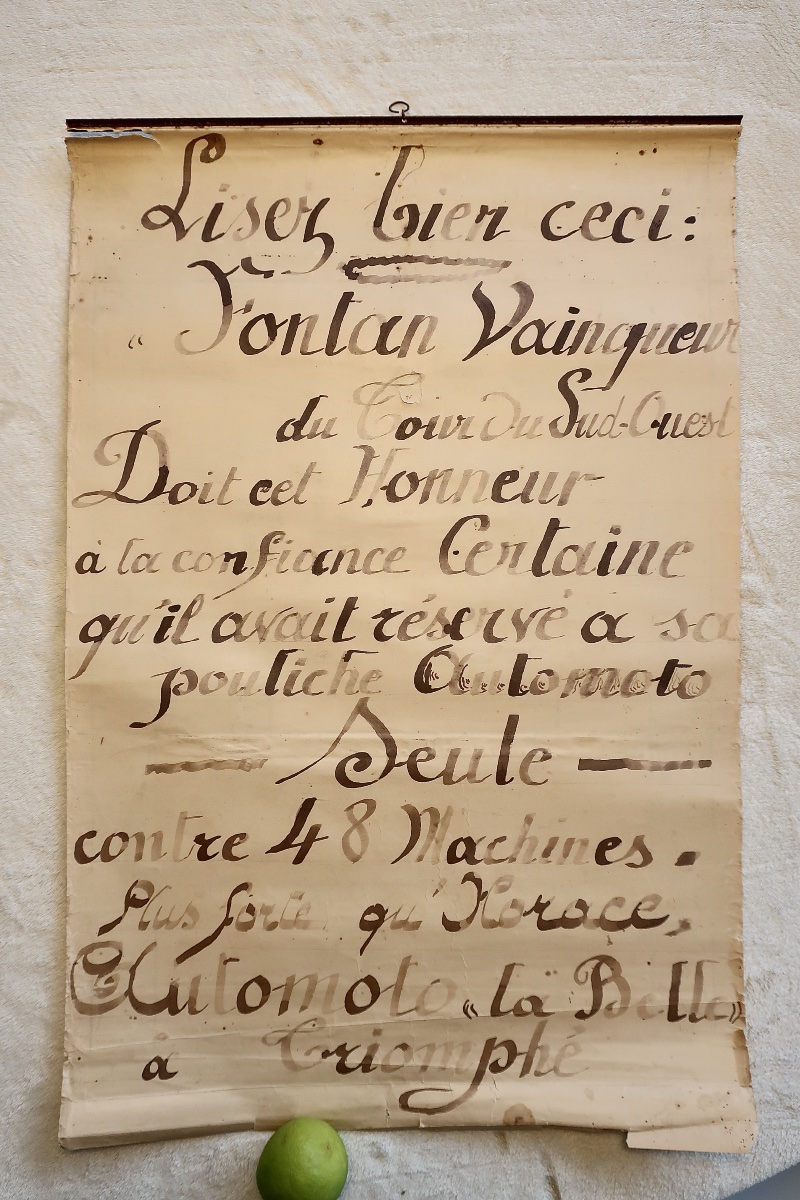 Lisez bien ceci:
" Fontan Vainqueur
du Tour du Sud-Ouest
Doit cet Honneur
à la confiance Certaine
qu'il avait réservé à sa
pouliche Automoto
— Seule —
contre 48 Machines.
Plus forte qu'Horace,
Automoto "la Belle"
à Triomphé